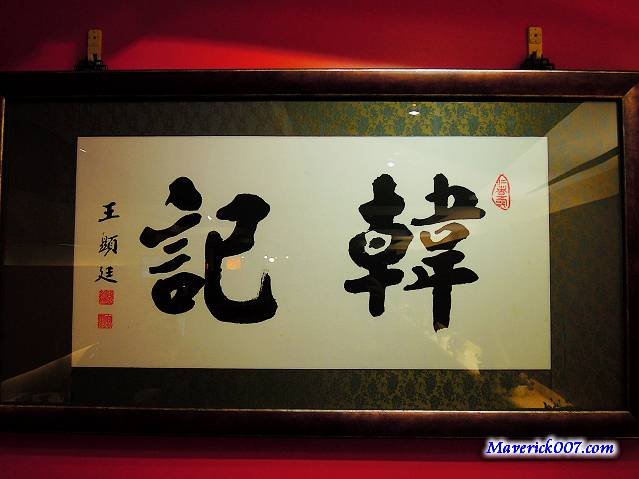 韓記
王顯廷
Maverick007.com